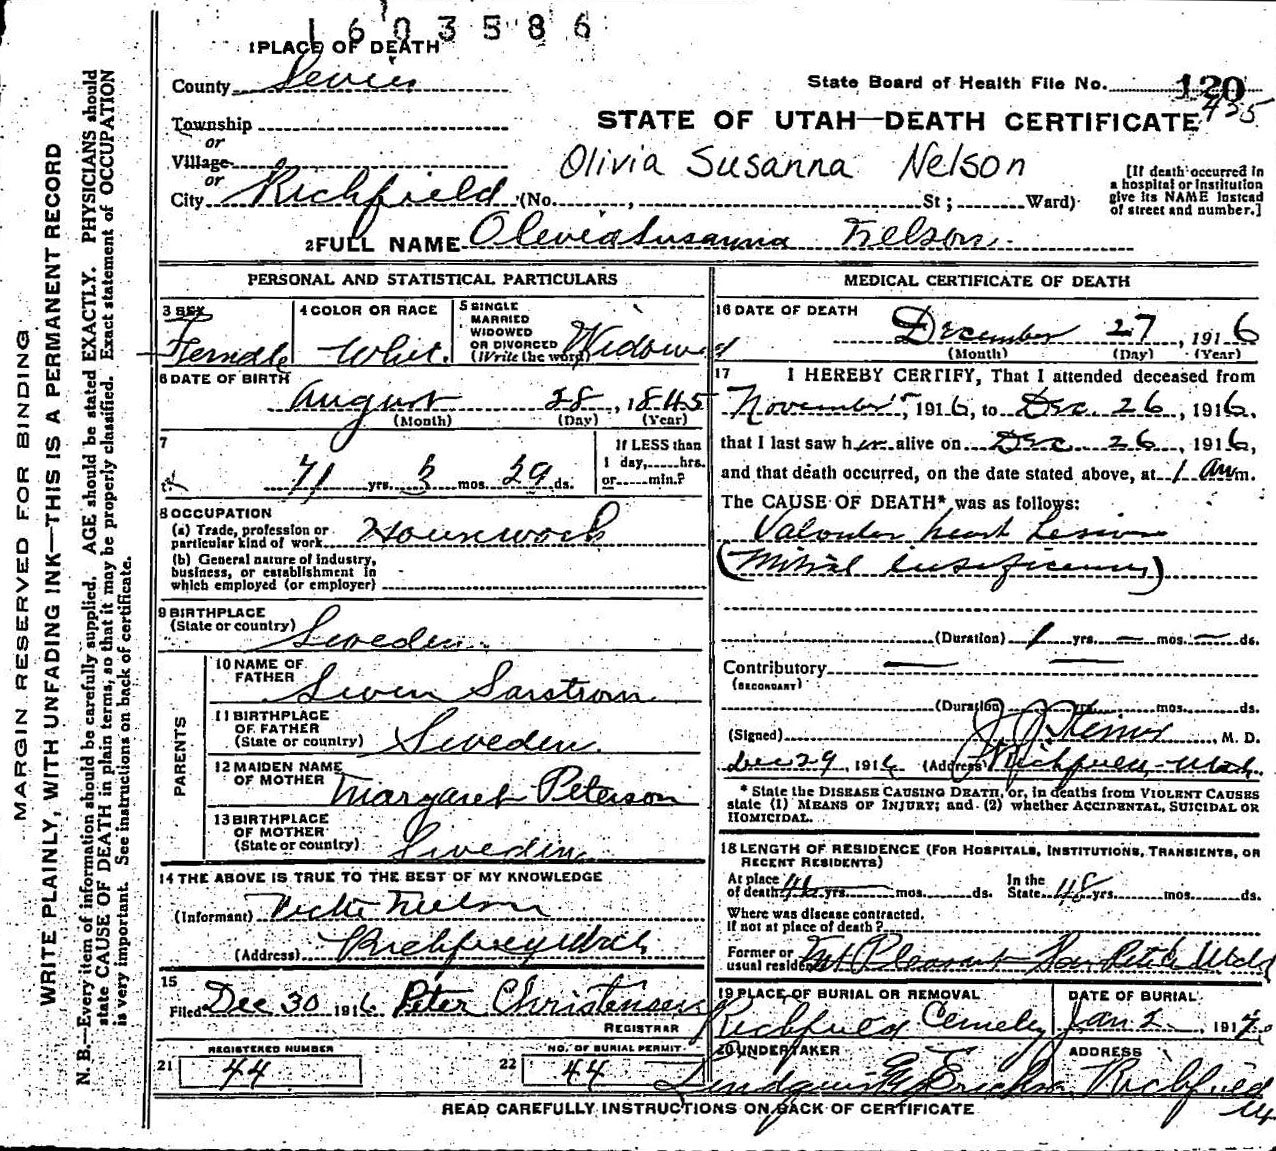 1603586
1 PLACE OF DEATH
County Sevier
State Board of Health File No. 120
425
Township
or
Village
or
City Richfield (No. , St; Ward)
STATE OF UTAH—DEATH CERTIFICATE
Olivia Susanna Nelson
[If death occurred in
a hospital or institution
give its NAME instead
of street and number.]
2 FULL NAME Olevia Susanna Nelson
PERSONAL AND STATISTICAL PARTICULARS
3 SEX
Female
4 COLOR OR RACE
White
5 SINGLE
MARRIED
WIDOWED
OR DIVORCED
(Write the word) Widowed
6 DATE OF BIRTH
August 28, 1845
(Month) (Day) (Year)
7
71 yrs. 3 mos. 29 ds.
If LESS than
1 day, hrs.
or min.?
8 OCCUPATION
(a) Trade, profession or
particular kind of work Housework
(b) General nature of industry,
business, or establishment in
which employed (or employer)
9 BIRTHPLACE
(State or country) Sweden
PARENTS
10 NAME OF
FATHER
Swen Sarstrom
11 BIRTHPLACE
OF FATHER
(State or country) Sweden
12 MAIDEN NAME
OF MOTHER Margaret Peterson
13 BIRTHPLACE
OF MOTHER
(State or country) Sweden
14 THE ABOVE IS TRUE TO THE BEST OF MY KNOWLEDGE
(Informant) Nelson
(Address) Richfield Utah
15
Filed Dec 30 1916 Peter Christensen
REGISTRAR
REGISTERED NUMBER
21 44
NO. OF BURIAL PERMIT
22 44
MEDICAL CERTIFICATE OF DEATH
16 DATE OF DEATH
December 27, 1916
(Month) (Day) (Year)
17 I HEREBY CERTIFY, That I attended deceased from
November 5, 1916, to Dec. 26, 1916,
that I last saw her alive on Dec. 26, 1916,
and that death occurred, on the date stated above, at 1 am m.
The CAUSE OF DEATH* was as follows:
Valvular heart Lesion
(Mitral insuficiency)
(Duration) 1 yrs. — mos. — ds.
Contributory — —
(SECONDARY)
(Duration) yrs. mos. ds.
(Signed) J. J. Steiner, M. D.
Dec 29, 1916 (Address) Richfield, Utah
* State the DISEASE CAUSING DEATH, or, in deaths from VIOLENT CAUSES
state (1) MEANS OF INJURY; and (2) whether ACCIDENTAL, SUICIDAL OR
HOMICIDAL.
18 LENGTH OF RESIDENCE (FOR HOSPITALS, INSTITUTIONS, TRANSIENTS, OR
RECENT RESIDENTS)
At place
of death 46 yrs. mos. ds. In the
State 48 yrs. mos. ds.
Where was disease contracted,
If not at place of death?
Former or
usual residence Mt Pleasant San Pete Utah
19 PLACE OF BURIAL OR REMOVAL
Richfield Cemetery
DATE OF BURIAL
Jan 2, 1917
20 UNDERTAKER
Lindquist & Erickson
ADDRESS
Richfield
READ CAREFULLY INSTRUCTIONS ON BACK OF CERTIFICATE
MARGIN RESERVED FOR BINDING
WRITE PLAINLY, WITH UNFADING INK—THIS IS A PERMANENT RECORD
N. B.—Every item of information should be carefully supplied. AGE should be stated EXACTLY. PHYSICIANS should
state CAUSE OF DEATH in plain terms, so that it may be properly classified. Exact statement of OCCUPATION
is very important. See instructions on back of certificate.